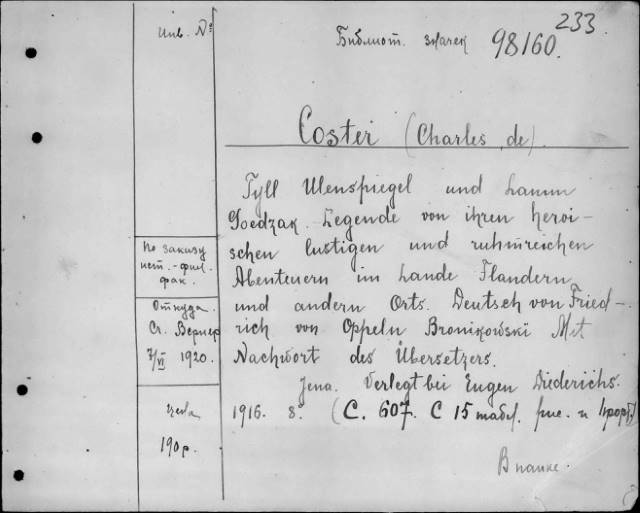 233.
Инв. №
Библиот. значек 98160.
Coster (Charles de).
Tyll Ulenspiegel und Lamm
Goedzak. Legende von ihren heroi-
schen lustigen und ruhmreichen
Abenteuern im Lande Flandern
und andern Orts. Deutsch von Fried-
rich von Oppeln Bronikowski Mit
Nachwort des Übersetzers.
Jena. Verlegt bei Eugen Diederichs.
1916. 8. (С. 607. С 15 табл. рис. и
В папке.
По заказу
ист.-фил.
фак.
Откуда.
Ст. Вернер
7/VI 1920.
Цена
190 р.